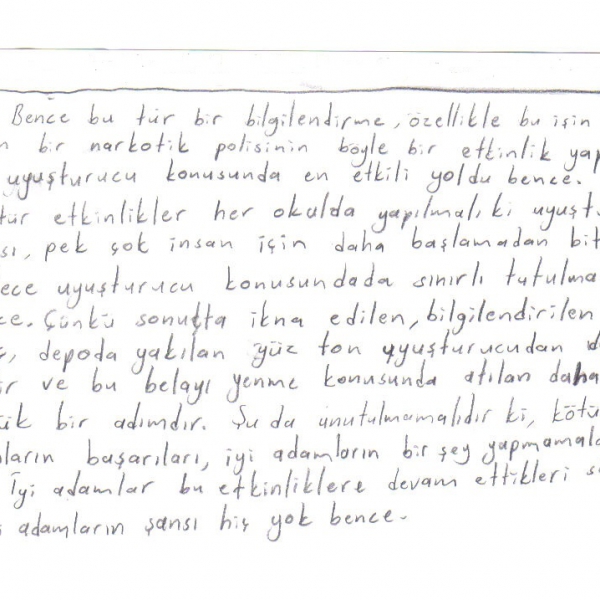 Bence bu tür bir bilgilendirme, özellikle bu işin
n bir narkotik polisinin böyle bir etkinlik yap
uyuşturucu konusunda en etkili yoldu bence.
tür etkinlikler her okulda yapılmalı ki uyuşt
sı, pek çok insan için daha başlamadan bit
ece uyuşturucu konusundada sınırlı tutulma
ce. Çünkü sonuçta ikna edilen, bilgilendirilen
ç, depoda yakılan yüz ton uyuşturucudan d
ir ve bu belayı yenme konusunda atılan daha
ük bir adımdır. Şu da unutulmamalıdır ki, kötü
mların başarıları, iyi adamların bir şey yapmamala
İyi adamlar bu etkinliklere devam ettikleri s
adamların şansı hiç yok bence.